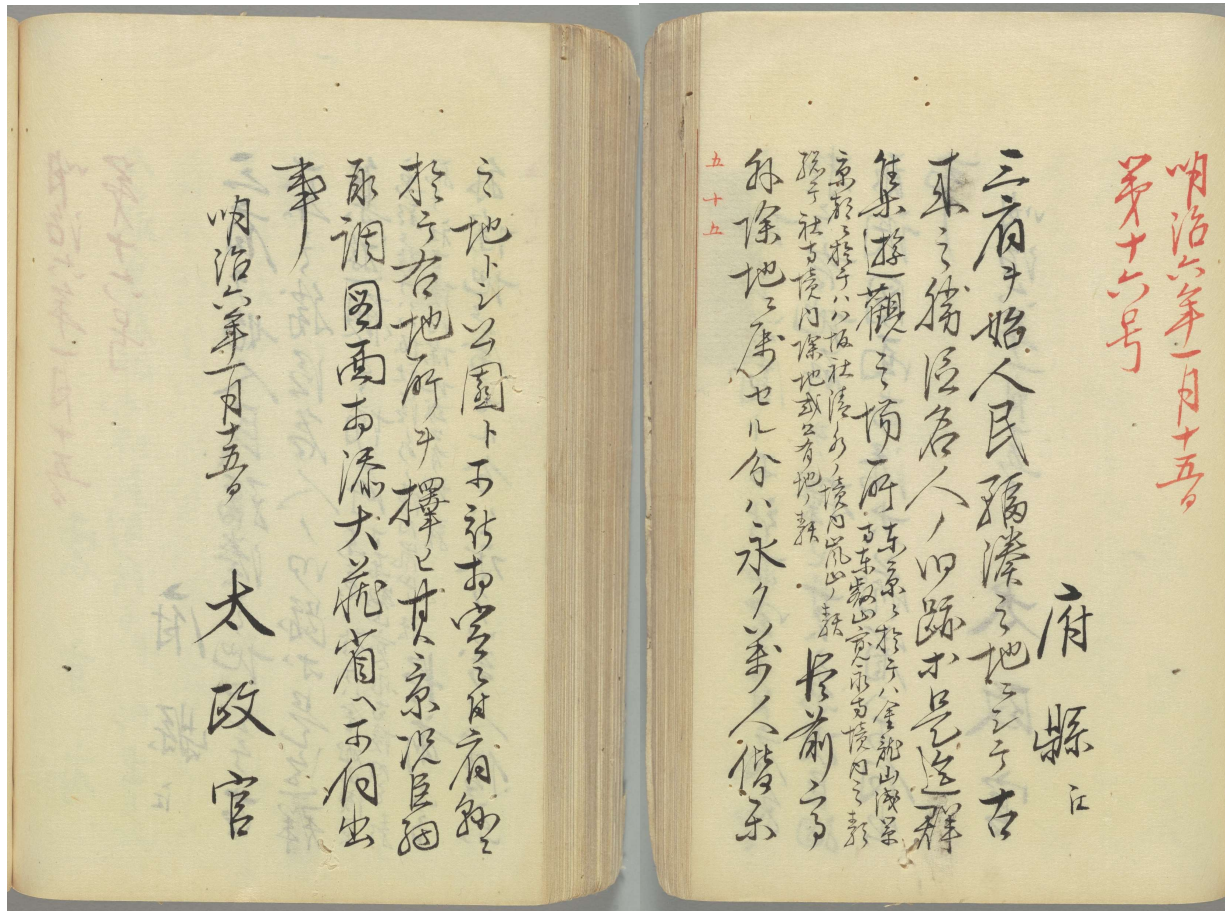 明治六年一月十五日
第十六号
府縣江
三府ヲ始人民輻湊之地ニシテ古
来之勝区名人ノ旧跡等是迄群
集遊觀之場所
東京ニ於テハ金龍山浅草
寺東叡山寛永寺境内之類
京都ニ於テハ八坂社清水ノ境内嵐山ノ類
総テ社寺境内除地或ハ公有地ノ類
従前高
外除地ニ属セル分ハ永ク萬人偕楽
五十五
之地トシ公園ト可被相定ニ付府縣ニ
於テ右地所ヲ擇ヒ其景況巨細
取調図面相添大蔵省ヘ可伺出
事
明治六年一月十五日
太政官